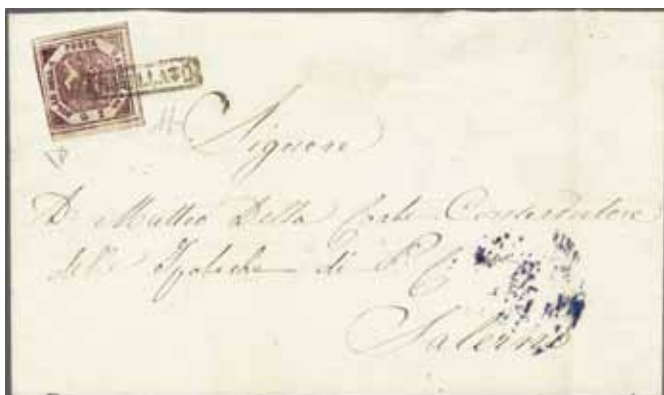 POSTA
ANNULLATO
Signore
D. Matteo Della Corte Conservatore
delle Ipoteche di P. C.
Salerno